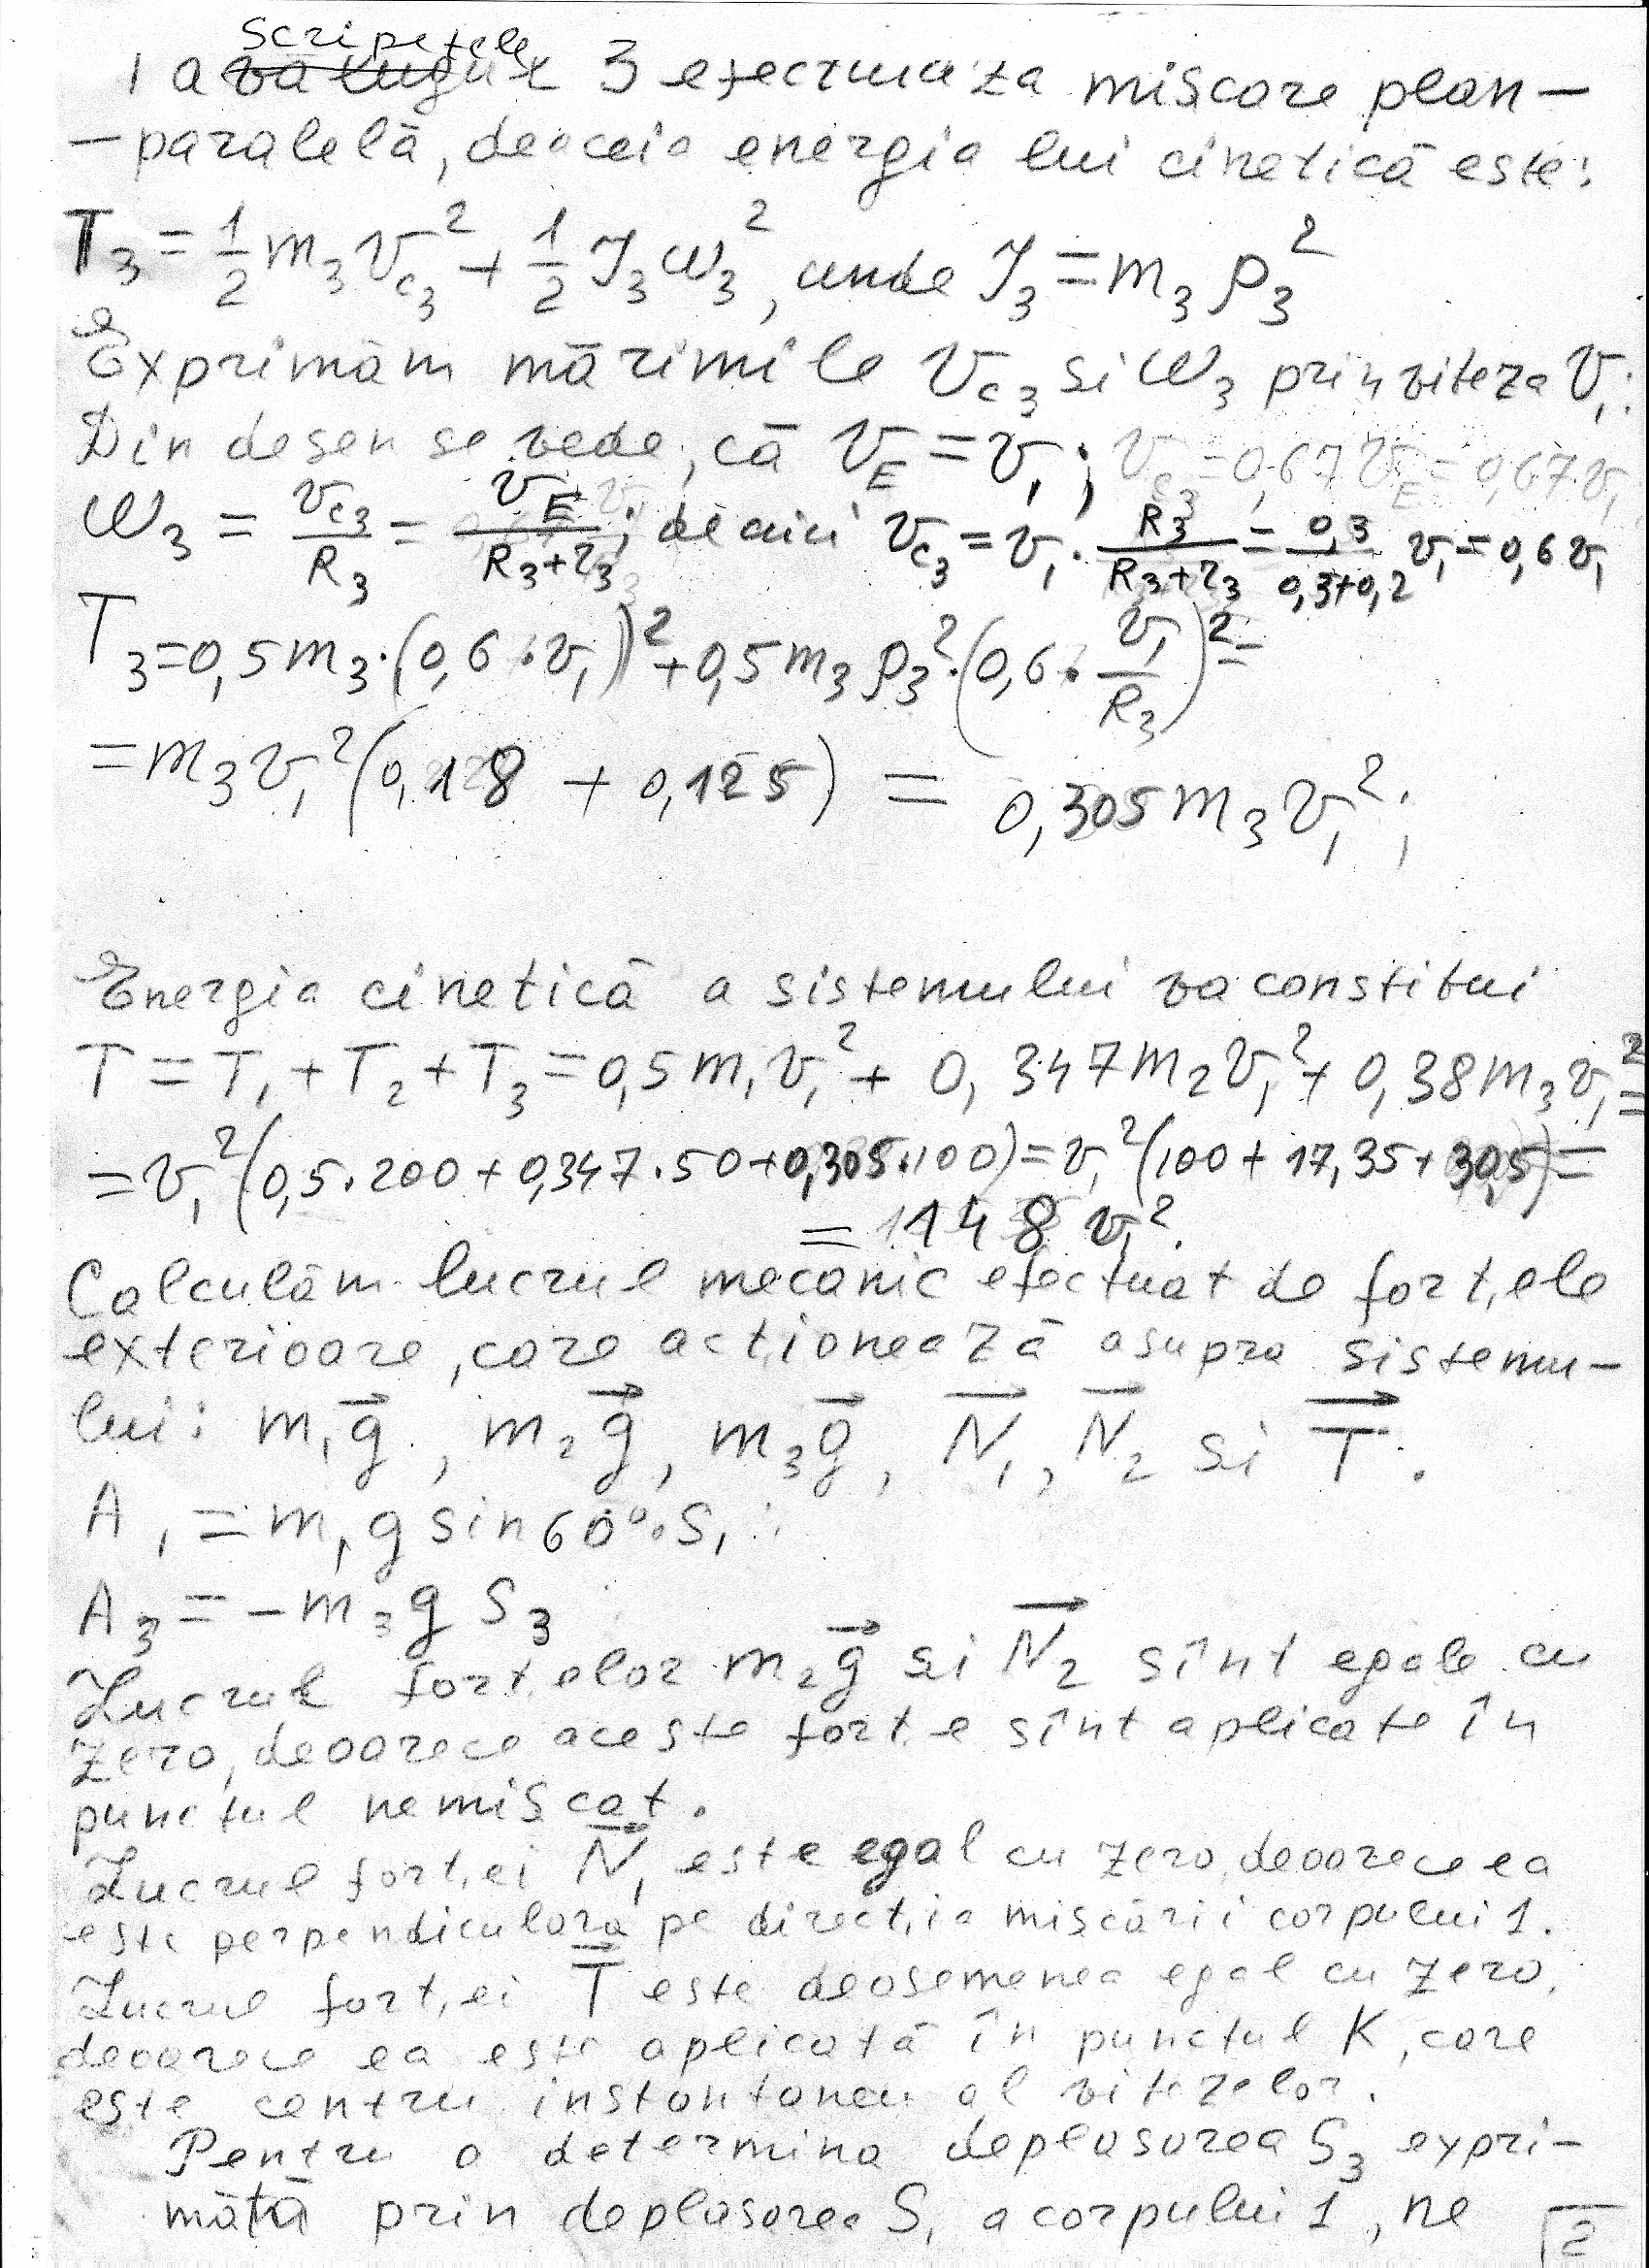 Scripetele
~~va lugul~~ 3 efectuiaza miscare plan-
-paralelă, deaceia energia lui cinetică este:
T₃ = 1/2 m₃ v_c₃² + 1/2 J₃ ω₃², unde J₃ = m₃ ρ₃²
Exprimăm mărimile v_c₃ si ω₃ prin viteza v₁:
Din desen se vede, că v_E = v₁; v_c₃ = 0,67 v_E = 0,67 v₁
ω₃ = v_c₃/R₃ = v_E/(R₃+r₃); de aici v_c₃ = v₁ · R₃/(R₃+r₃) = 0,3/(0,3+0,2) v₁ = 0,6 v₁
T₃ = 0,5 m₃ · (0,6 · v₁)² + 0,5 m₃ ρ₃² · (0,6 · v₁/R₃)² =
= m₃ v₁² (0,18 + 0,125) = 0,305 m₃ v₁²;
Energia cinetică a sistemului va constitui
T = T₁ + T₂ + T₃ = 0,5 m₁ v₁² + 0,347 m₂ v₁² + 0,38 m₃ v₁² =
= v₁² (0,5 · 200 + 0,347 · 50 + 0,305 · 100) = v₁² (100 + 17,35 + 30,5) =
= 148 v₁².
Calculăm lucrul mecanic efectuat de fort,ele
exterioare, care act,ionează asupra sistemu-
lui: m₁g⃗, m₂g⃗, m₃g⃗, N⃗₁, N⃗₂ si T⃗.
A₁ = m₁ g sin 60° · S₁
A₃ = - m₃ g S₃
Lucrul fort,elor m₂g⃗ si N⃗₂ sînt egale cu
zero, deoarece aceste fort,e sînt aplicate în
punctul nemișcat.
Lucrul fort,ei N⃗₁ este egal cu zero, deoarece ea
este perpendiculară pe direct,ia mișcării corpului 1.
Lucrul fort,ei T⃗ este deasemenea egal cu zero,
deoarece ea este aplicată în punctul K, care
este centru instantaneu al vitezelor.
Pentru a determina deplasarea S₃ expri-
mată prin deplasarea S₁ a corpului 1, ne
2